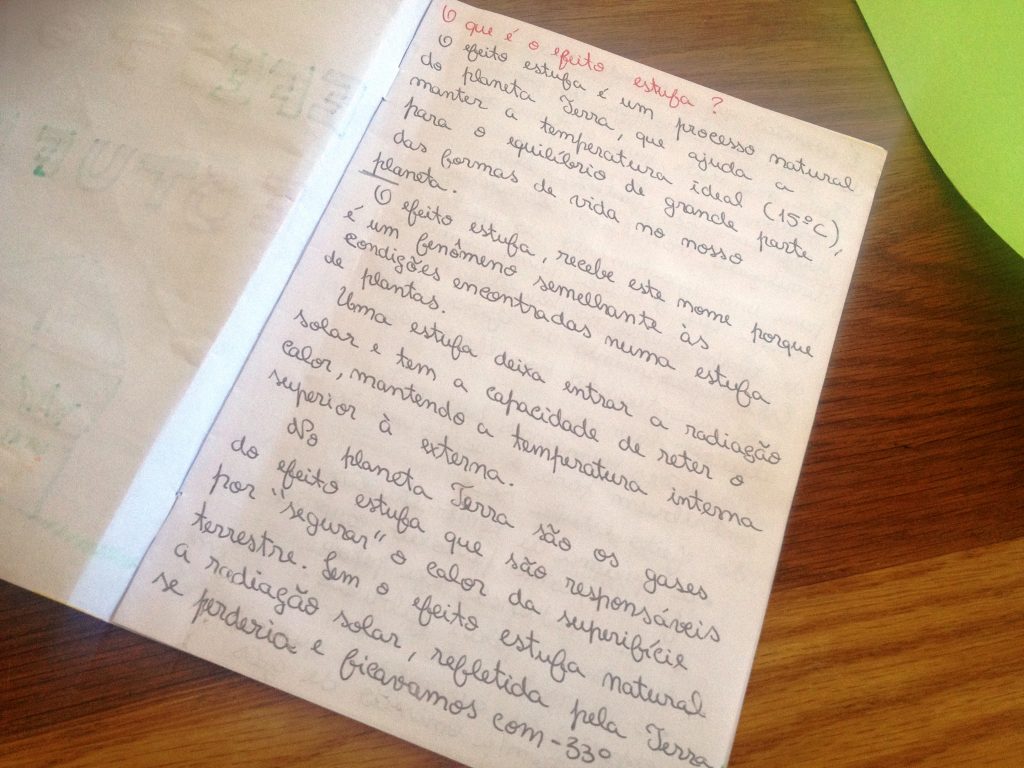 O que é o efeito estufa ?
O efeito estufa é um processo natural
do planeta Terra, que ajuda a
manter a temperatura ideal (15ºC),
para o equilíbrio de grande parte
das formas de vida no nosso
planeta.
O efeito estufa, recebe este nome porque
é um fenômeno semelhante às
condições encontradas numa estufa
de plantas.
Uma estufa deixa entrar a radiação
solar e tem a capacidade de reter o
calor, mantendo a temperatura interna
superior à externa.
No planeta Terra são os gases
do efeito estufa que são responsáveis
por "segurar" o calor da superifície
terrestre. Sem o efeito estufa natural
a radiação solar, refletida pela Terra
se perderia e ficavamos com -33º